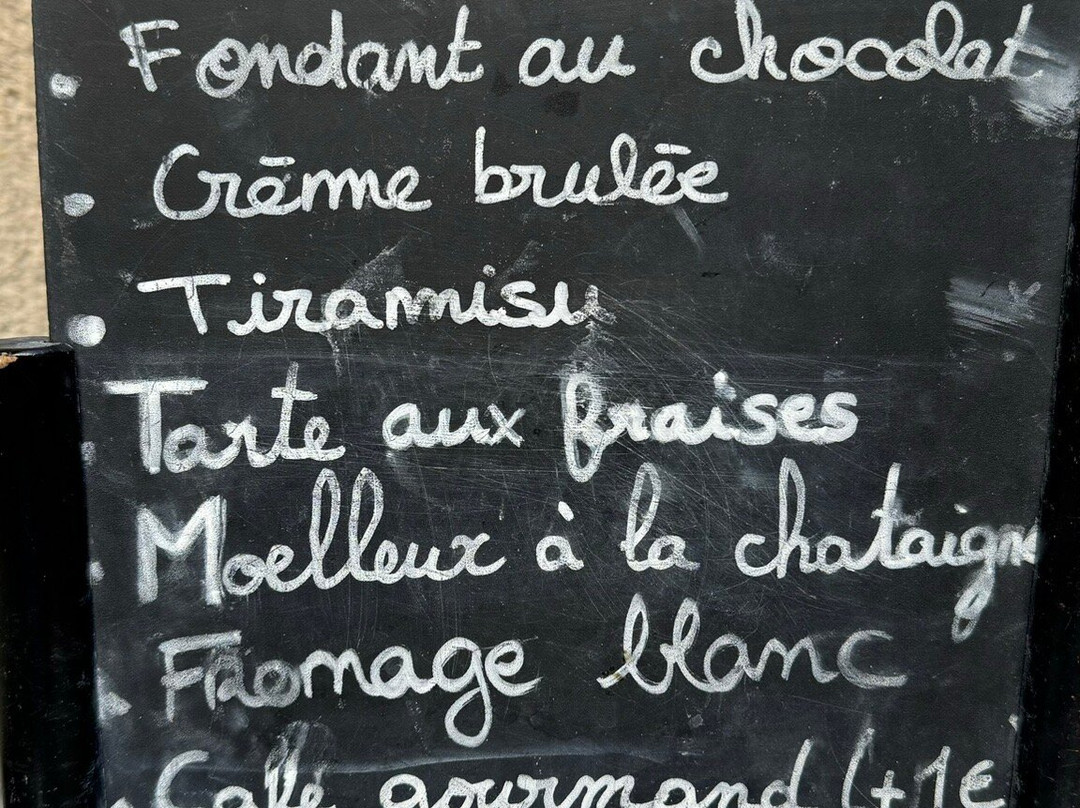 Fondant au chocolat
Crēme brulēe
Tiramisu
Tarte aux fraises
Moelleux à la chataign
Fromage blanc
Café gourmand (+1€